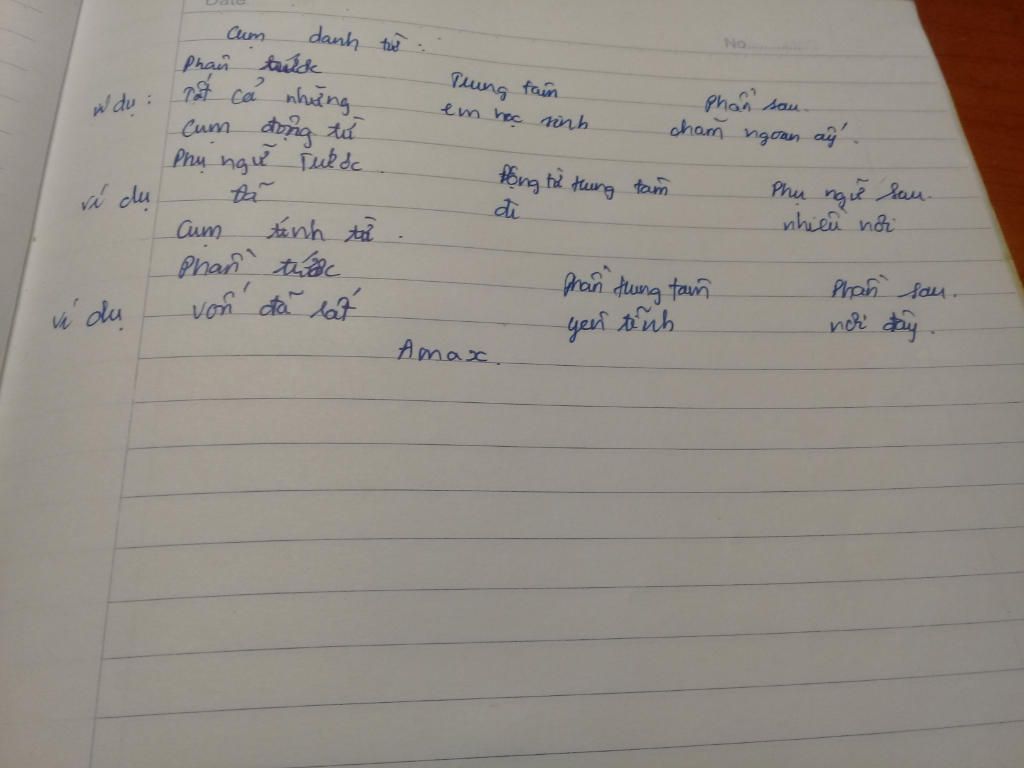 Date
No.
Cụm danh từ:
Phần trước Trung tâm Phần sau.
ví dụ: Tất cả những em học sinh chăm ngoan ấy.
Cụm động từ
Phụ ngữ Trước Động từ trung tâm Phụ ngữ sau.
ví dụ đã đi nhiều nơi
Cụm tính từ.
Phần trước Phần trung tâm Phần sau.
ví dụ vốn đã rất yên tĩnh nơi đây.
Amax.